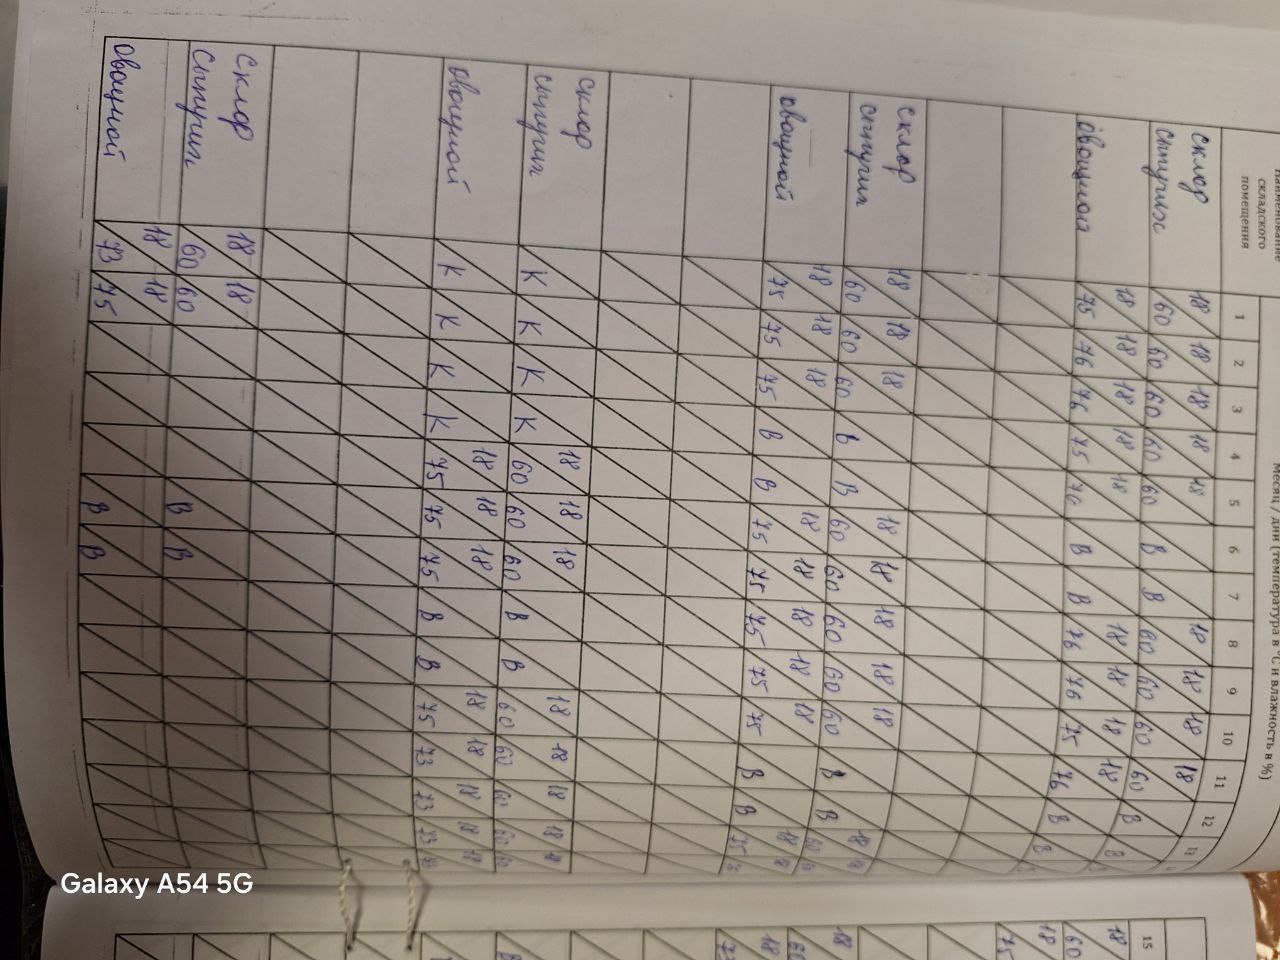 складского
помещения
Месяц / дни (температура в °С и влажность в %)
1 2 3 4 5 6 7 8 9 10 11 12 13
склад 18 18 18 18 18 18 18 18 18
сыпучих 60 60 60 60 60 В В 60 60 60 60 В В
18 18 18 18 18 18 18 18 18
овощной 75 76 76 75 76 В В 76 76 75 76 В В
склад 18 18 18 18 18 18 18 18 18
сыпучих 60 60 60 В В 60 60 60 60 60 В В
18 18 18 18 18 18 18 18 18
овощной 75 75 75 В В 75 75 75 75 75 В В 75
склад 18 18 18 18 18 18 18
сыпучих К К К К 60 60 60 В В 60 60 60 60
18 18 18 18 18 18 18 18
овощной К К К К 75 75 75 В В 75 73 73 73
склад 18 18
сыпучих 60 60 В В
18 18
овощной 73 75 В В
15
18
60
18
75
18
60
18
Galaxy A54 5G